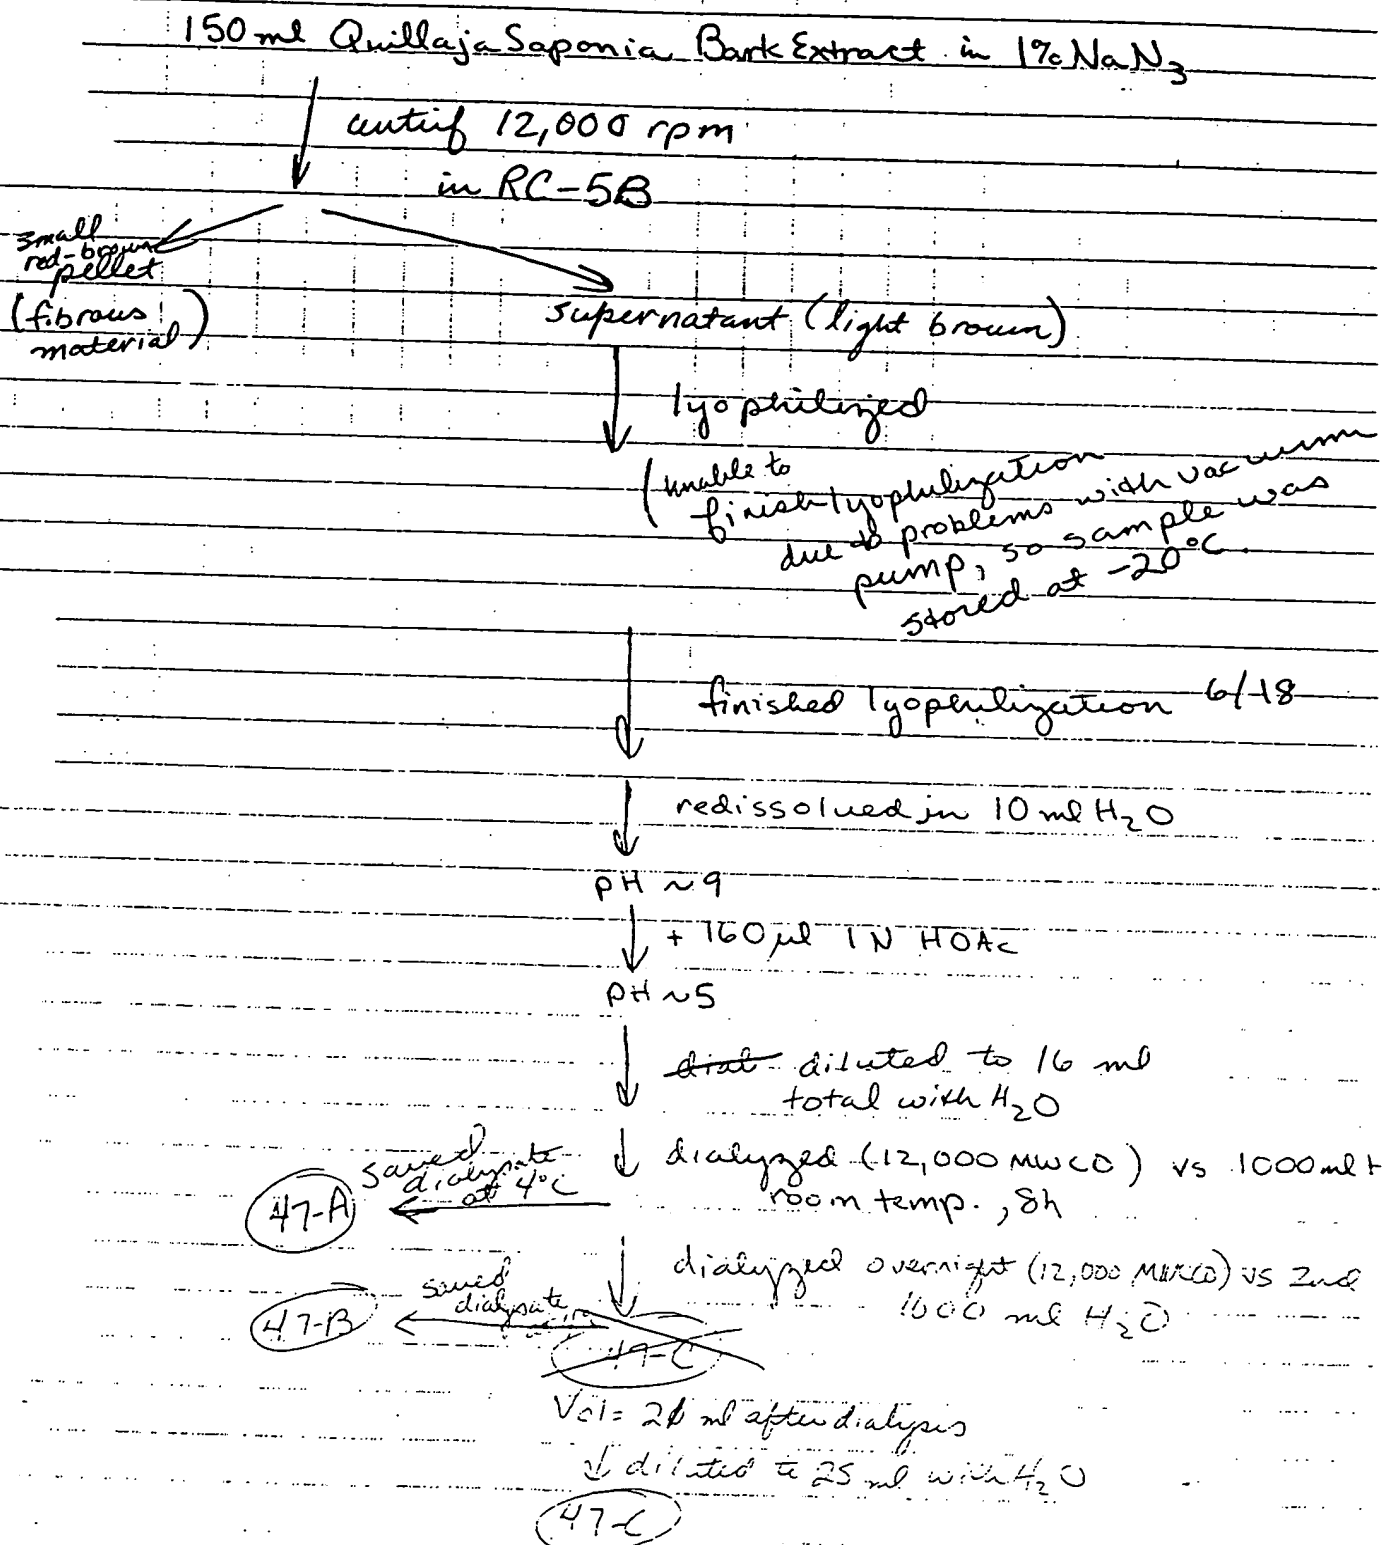 150 ml Quillaja Saponia Bark Extract in 1% NaN3
centrif 12,000 rpm
in RC-5B
small
red-brown
pellet
(fibrous
material)
supernatant (light brown)
lyophilized
(unable to
finish lyophilization
due to problems with vacuum
pump, so sample was
stored at -20°C.
finished lyophilization 6/18
redissolved in 10 ml H2O
pH ~9
+ 160 µl 1N HOAc
pH ~5
dial diluted to 16 ml
total with H2O
dialyzed (12,000 MWCO) vs 1000 ml
room temp., 8h
saved
dialysate
at 4°C
47-A
dialyzed overnight (12,000 MWCO) vs 2nd
1000 ml H2O
saved
dialysate
47-B
47-C
Vol = ml after dialysis
diluted to 25 ml with H2O
47-C